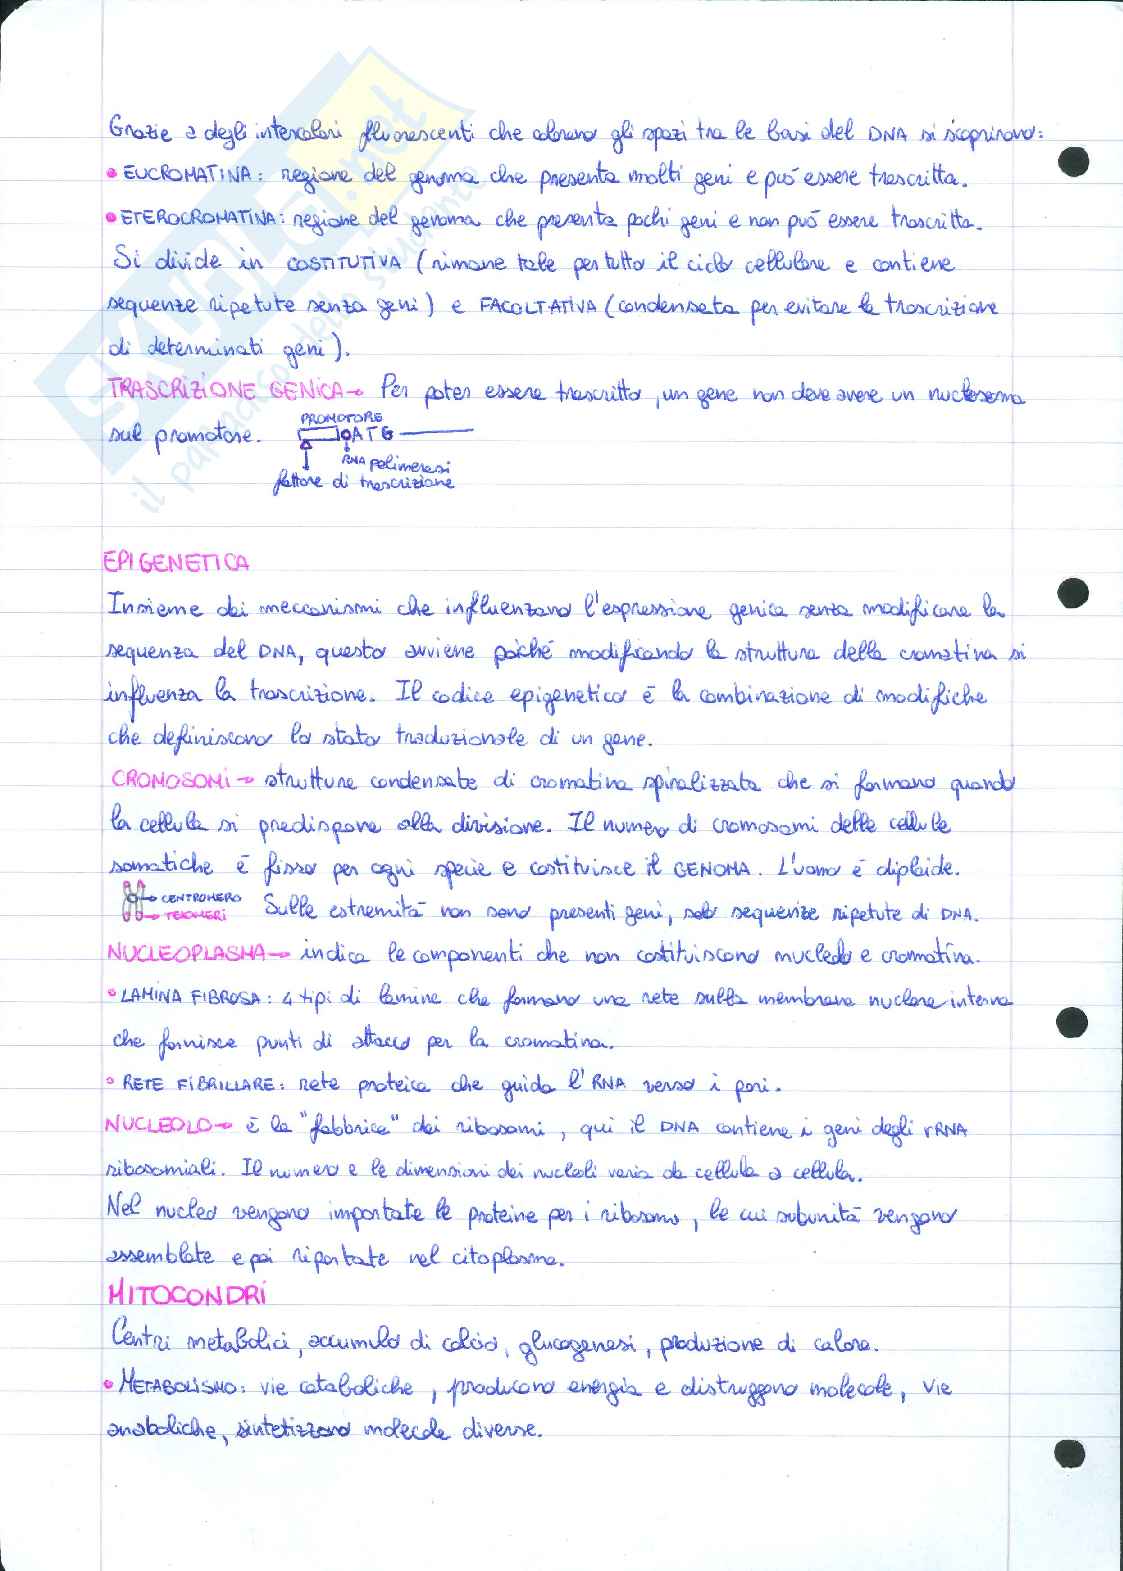 Grazie a degli intercalari fluorescenti che colorano gli spazi tra le basi del DNA si scoprirono:
• EUCROMATINA: regione del genoma che presenta molti geni e può essere trascritta.
• ETEROCROMATINA: regione del genoma che presenta pochi geni e non può essere trascritta.
Si divide in COSTITUTIVA (rimane tale per tutto il ciclo cellulare e contiene
sequenze ripetute senza geni) e FACOLTATIVA (condensata per evitare la trascrizione
di determinati geni).
TRASCRIZIONE GENICA → Per poter essere trascritto, un gene non deve avere un nucleosoma
sul promotore.
PROMOTORE
ATG
RNA polimerasi
fattore di trascrizione
EPIGENETICA
Insieme dei meccanismi che influenzano l'espressione genica senza modificare la
sequenza del DNA, questo avviene poiché modificando la struttura della cromatina si
influenza la trascrizione. Il codice epigenetico è la combinazione di modifiche
che definiscono lo stato traduzionale di un gene.
CROMOSOMI → strutture condensate di cromatina spiralizzata che si formano quando
la cellula si predispone alla divisione. Il numero di cromosomi delle cellule
somatiche è fisso per ogni specie e costituisce il GENOMA. L'uomo è diploide.
→ CENTROMERO
→ TELOMERI
Sulle estremità non sono presenti geni, solo sequenze ripetute di DNA.
NUCLEOPLASMA → indica le componenti che non costituiscono nucleolo e cromatina.
• LAMINA FIBROSA: 4 tipi di lamine che formano una rete sulla membrana nucleare interna
che fornisce punti di attacco per la cromatina.
• RETE FIBRILLARE: rete proteica che guida l'RNA verso i pori.
NUCLEOLO → è la "fabbrica" dei ribosomi, qui il DNA contiene i geni degli rRNA
ribosomiali. Il numero e le dimensioni dei nucleoli varia da cellula a cellula.
Nel nucleo vengono importate le proteine per i ribosomi, le cui subunità vengono
assemblate e poi riportate nel citoplasma.
MITOCONDRI
Centri metabolici, accumulo di calcio, glucogenesi, produzione di calore.
• METABOLISMO: vie cataboliche, producono energia e distruggono molecole, vie
anaboliche, sintetizzano molecole diverse.
SKUOLA.net
il paradiso dello studente